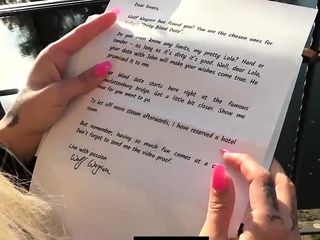 Dear lovers,
Wolf Wagner has found you! You are the chosen ones for
"Nasty Blind Date".
Do you even know any limits, my pretty Lola? Hard or
tender - as long as it's dirty it's good. Well, dear Lola,
your date with John will make your wishes come true. He
promised it to me.
blind date starts here right at the famous
bridge. Get a little bit closer. Show me
how far you want to go.
To let off more steam afterwards, I have reserved a hotel
room.
But remember, having so much fun comes at a
Don't forget to send me the video proof.
Live with passion
Wolf Wagner